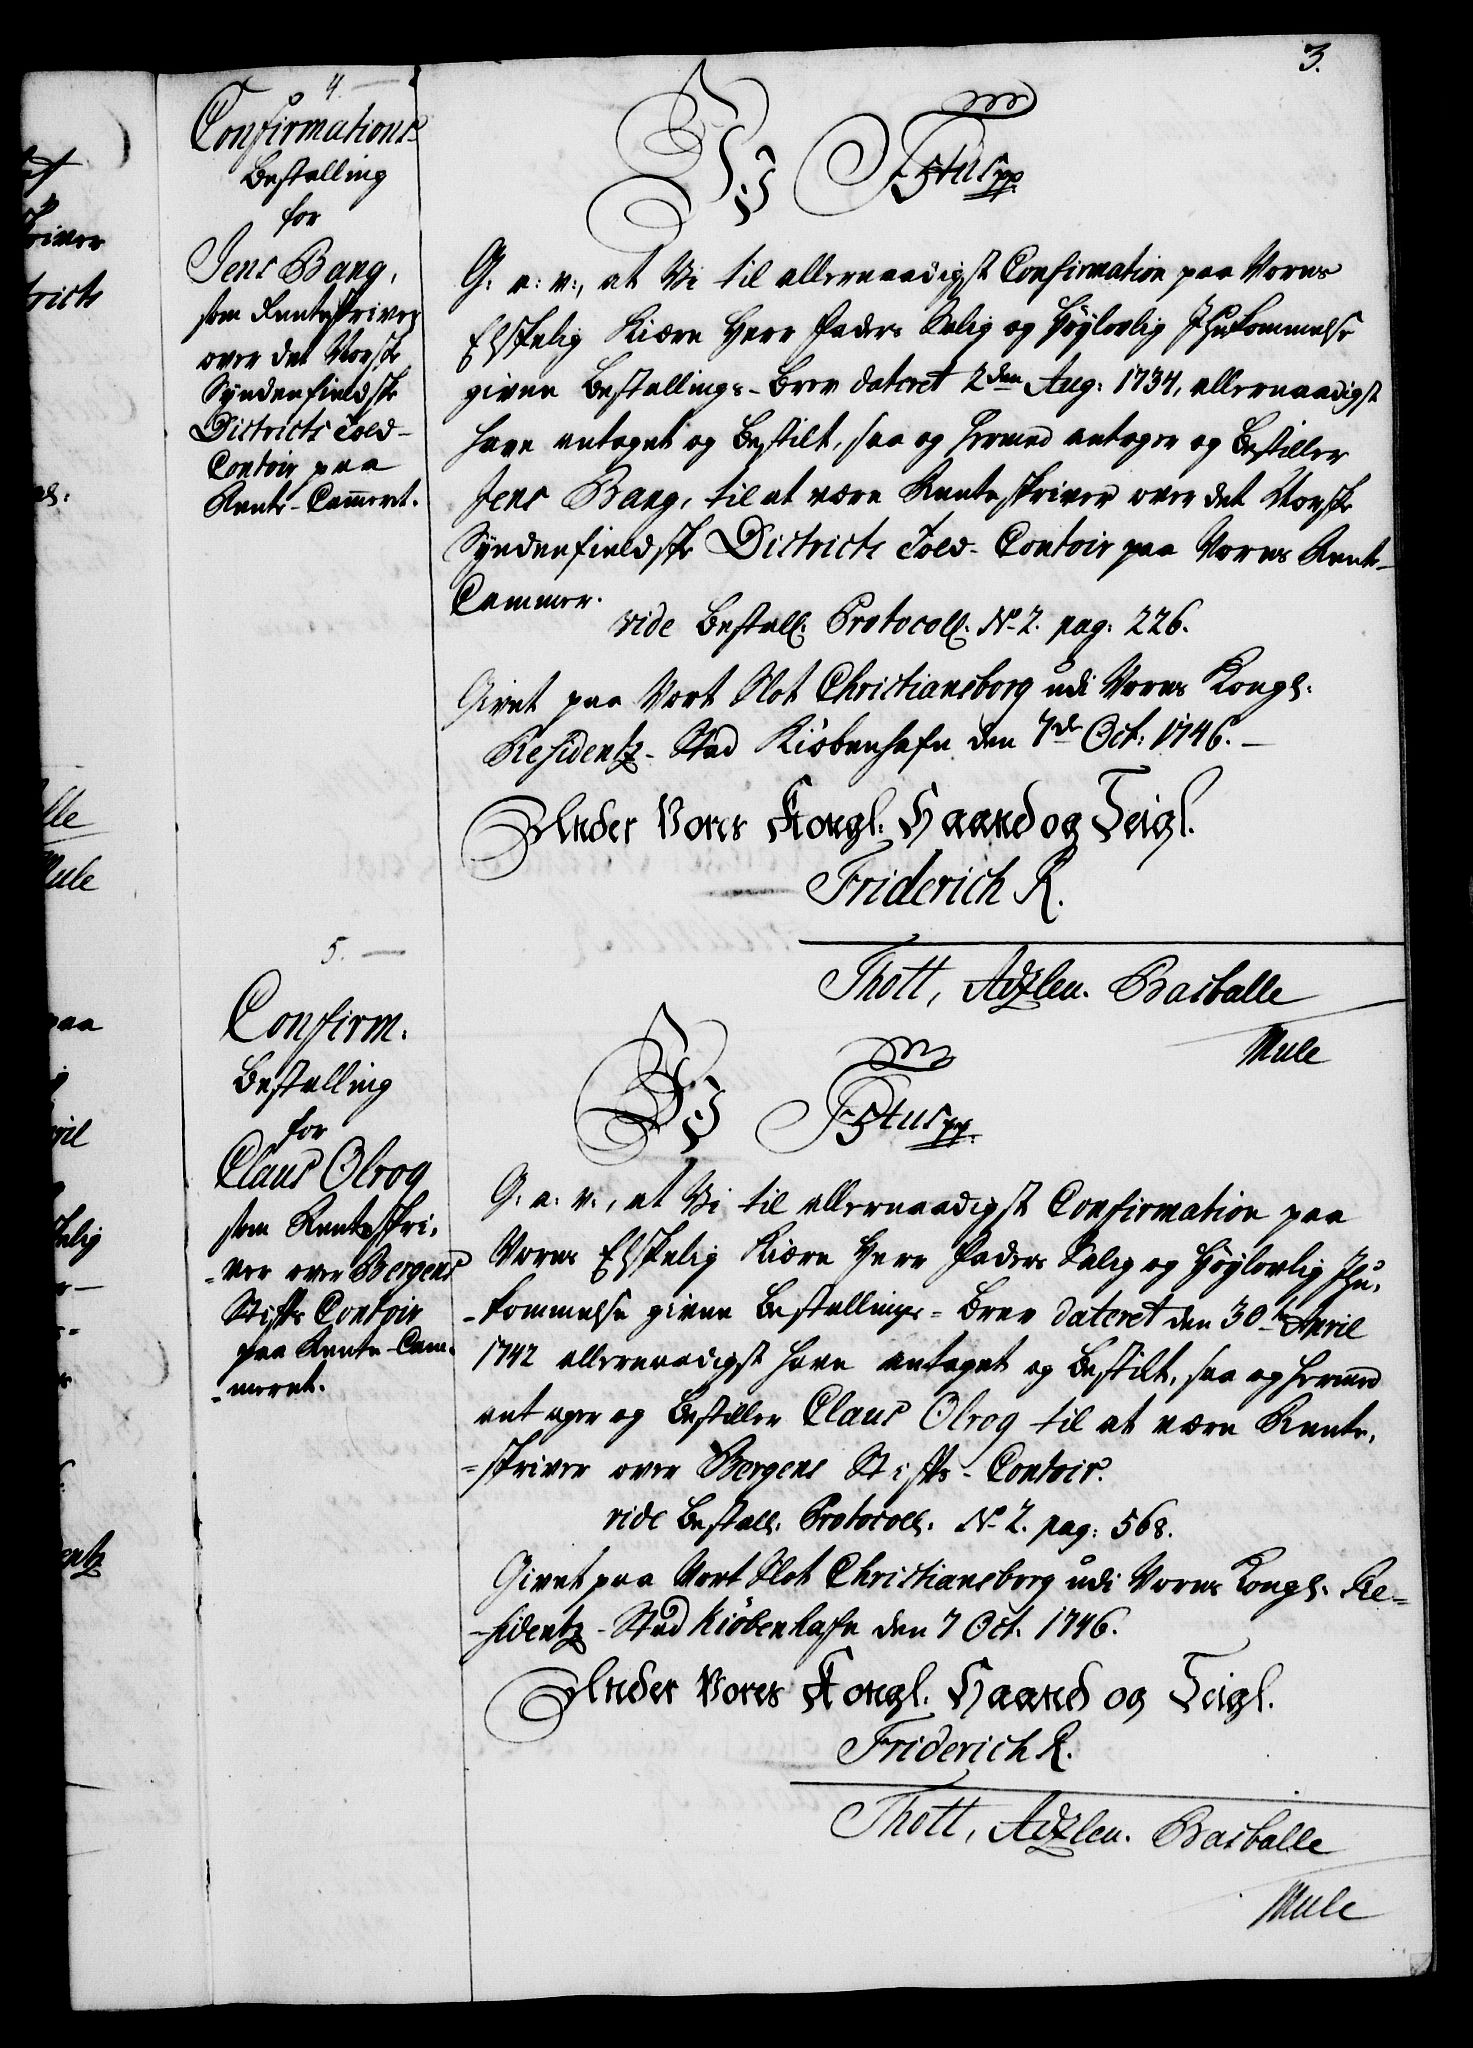 3.
4.
Confirmations
Bestalling
for
Jens Bang,
som Renteskriver
over det Norske
Syndenfieldske
Districts Told-
Contoir paa
Rente-Cammeret.
Vi Friderich den 5tus pp.
G: a: v:, at Vi til allernaadigst Confirmation paa Vores
Elskelig Kiære Herr Faders Salig og Høylovlig Ihukommelse
given Bestallings-Brev dateret 2den Aug: 1734, allernaadigst
have antaget og bestilt, saa og hermed antager og bestiller
Jens Bang, til at være Renteskriver over det Norske
Syndenfieldske Districts Told-Contoir paa Vores Rente-
Cammer.
vide Bestall: Protocoll: No 2. pag: 226.
Givet paa Vort Slot Christiansborg udi Vores Kongl:
Residentz-Stad Kiøbenhafn den 7de Oct: 1746.
Under Vores Kongl: Haand og Seigl.
Friderich R.
Thott, Adzlew. Basballe
Mule
5.
Confirm:
Bestalling
for
Claus Olrog
som Renteskri-
-ver over Bergens
Stifts Contoir
paa Rente-Cam-
-meret.
Vi F 5tus pp.
G: a: v:, at Vi til allernaadigst Confirmation paa
Vores Elskelig Kiære Herr Faders Salig og Høylovlig Ihu-
-kommelse given Bestallings-Brev dateret den 30te April
1742 allernaadigst have antaget og bestilt, saa og hermed
antager og bestiller Claus Olrog til at være Rente-
-skriver over Bergens Stifts-Contoir.
vide Bestall: Protocoll: No 2. pag: 568.
Givet paa Vort Slot Christiansborg udi Vores Kongl: Re-
-sidentz-Stad Kiøbenhafn den 7 Oct: 1746.
Under Vores Kongl: Haand og Seigl.
Friderich R.
Thott, Basballe
Mule